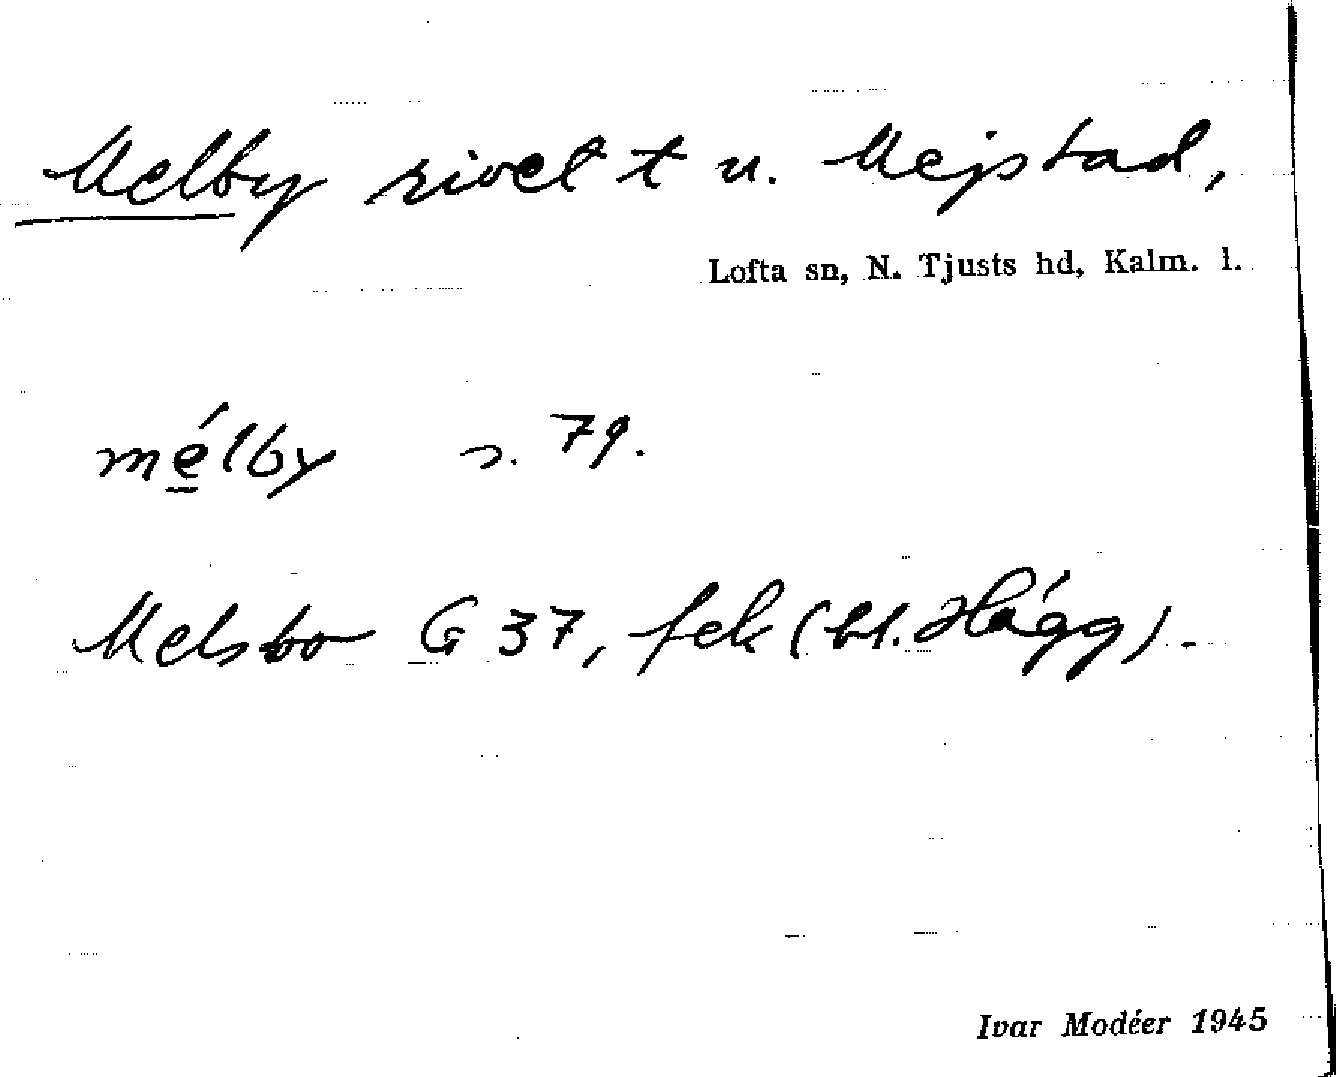 Melby rivet t u. Mejstad,
Lofta sn, N. Tjusts hd, Kalm. l.
mélby s. 79.
Melsbo G 37, fek (bl. Hägg).
Ivar Modéer 1945